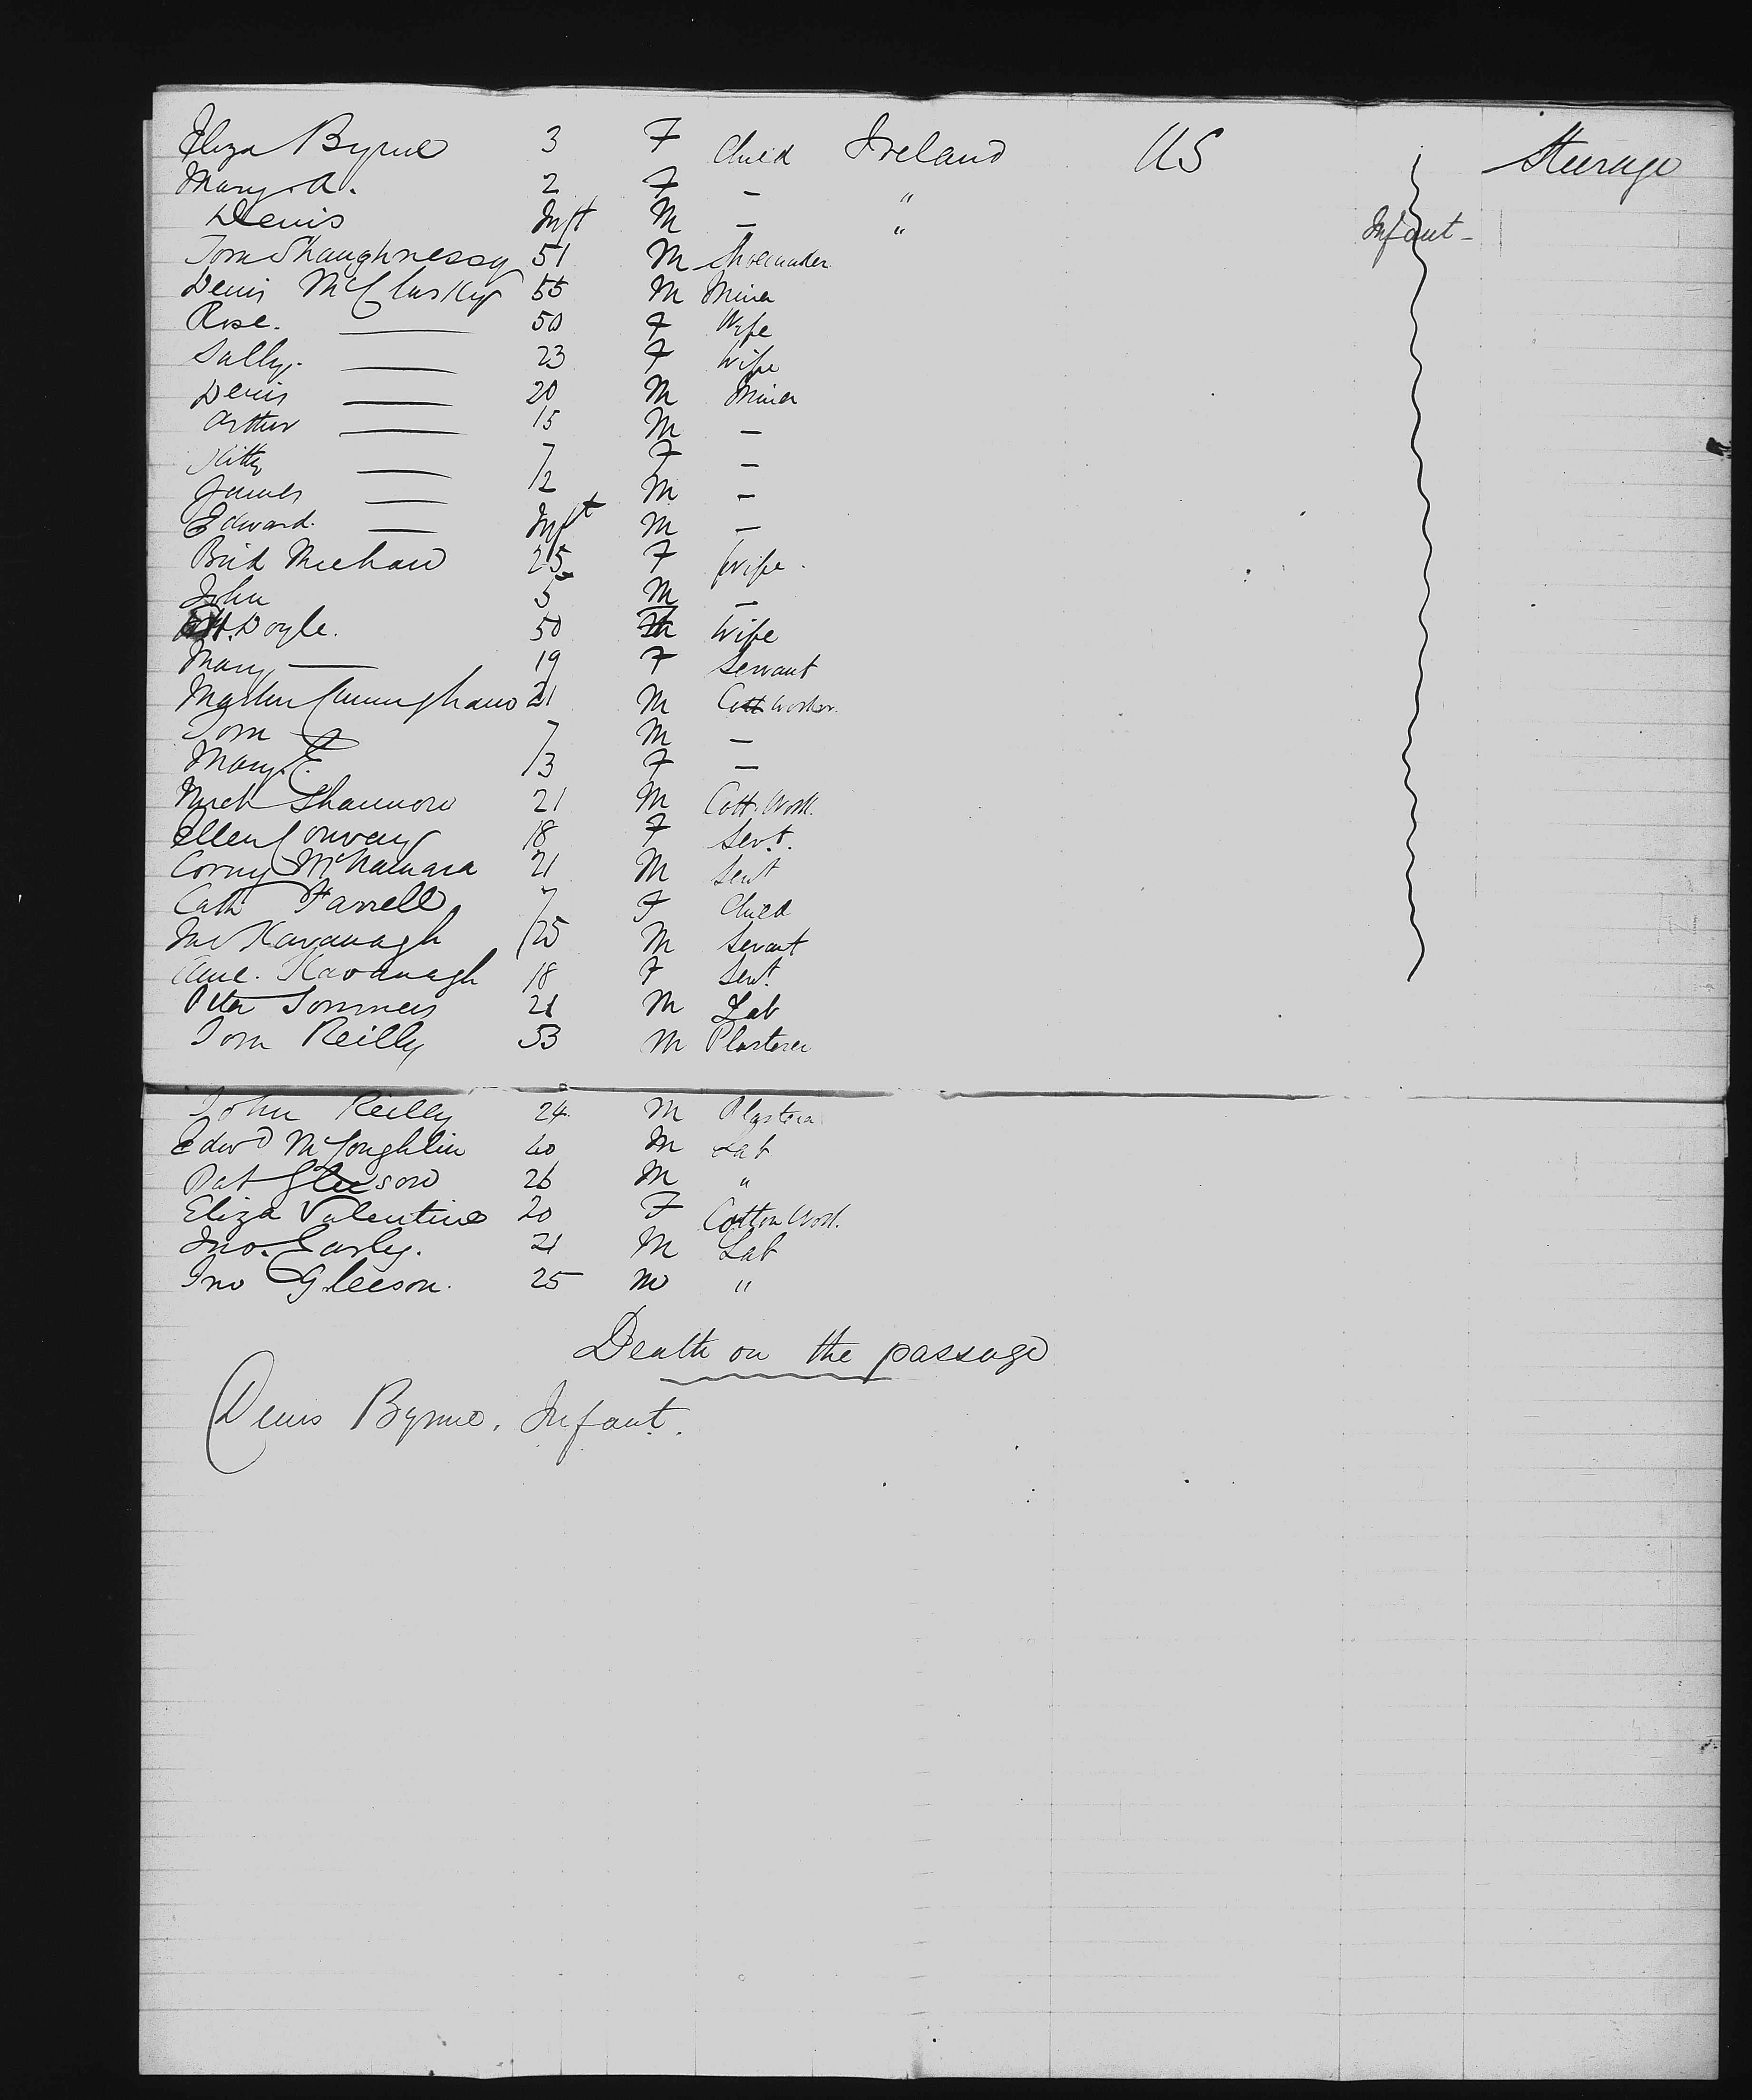 Eliza Byrne 3 F Child Ireland US Steerage
Mary A. 2 F — "
Denis Inft M — " Infant -
Tom Shaughnessy 51 M Shoemaker
Denis McCluskey 55 M Miner
Rose. — 50 F Wife
Sally. — 23 F Wife
Denis — 20 M Miner
Arthur — 15 M —
Kitty — 7 F —
James — 2 M —
Edward. — Inft M —
Brid Meehan 25 F Wife.
John 5 M —
Doyle. 50 Wife
Mary — 19 F Servant
Martin Cunningham 21 M Cott Worker.
Tom 7 M —
Mary E. 3 F —
Mich Shannon 21 M Cott. Work.
Ellen Conway 18 F Servt.
Corny McNamara 21 M Servt
Cath Farrell 7 F Child
Kavanagh 25 M Servant
Anne. Kavanagh 18 F Servt.
Peter Sommers 21 M Lab
Tom Reilly 53 M Plasterer
John Reilly 24. M Plasterer
Edwd McLoughlin 40 M Lab.
Pat Gleeson 26 M "
Eliza Valentine 20 F Cotton Work.
Jno. Early. 21 M Lab
Jno Gleeson. 25 M "
Death on the passage
Denis Byrne. Infant.